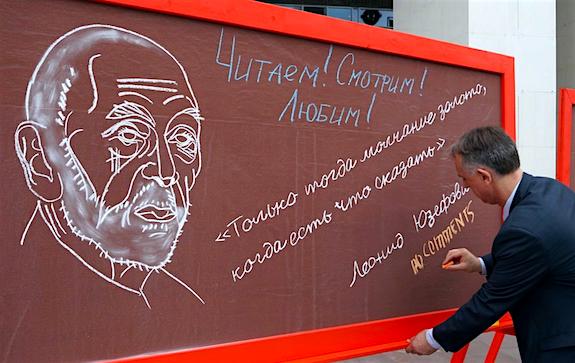 Читаем! Смотрим!
Любим!
«Только тогда молчание золото,
когда есть что сказать»
Леонид Юзефович
NO COMMENTS